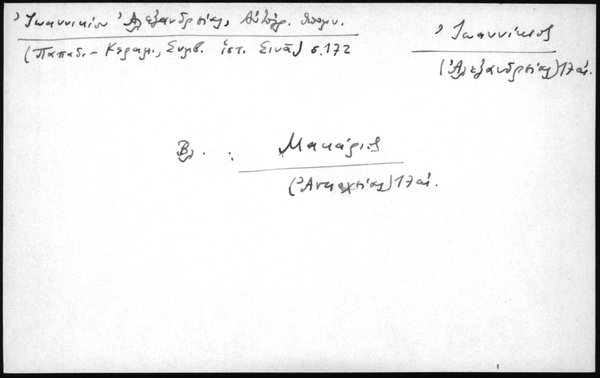 Ἰωαννικίου Ἀλεξανδρείας, Αὐτόγρ. ὑπομν.
(Παπαδ.-Κεραμ., Συμβ. ἱστ. Σινᾶ) σ.172
Ἰωαννίκιος
(Ἀλεξανδρείας) 17 αἰ.
Βλ. : Μακάριος
(Ἀντιοχείας) 17 αἰ.